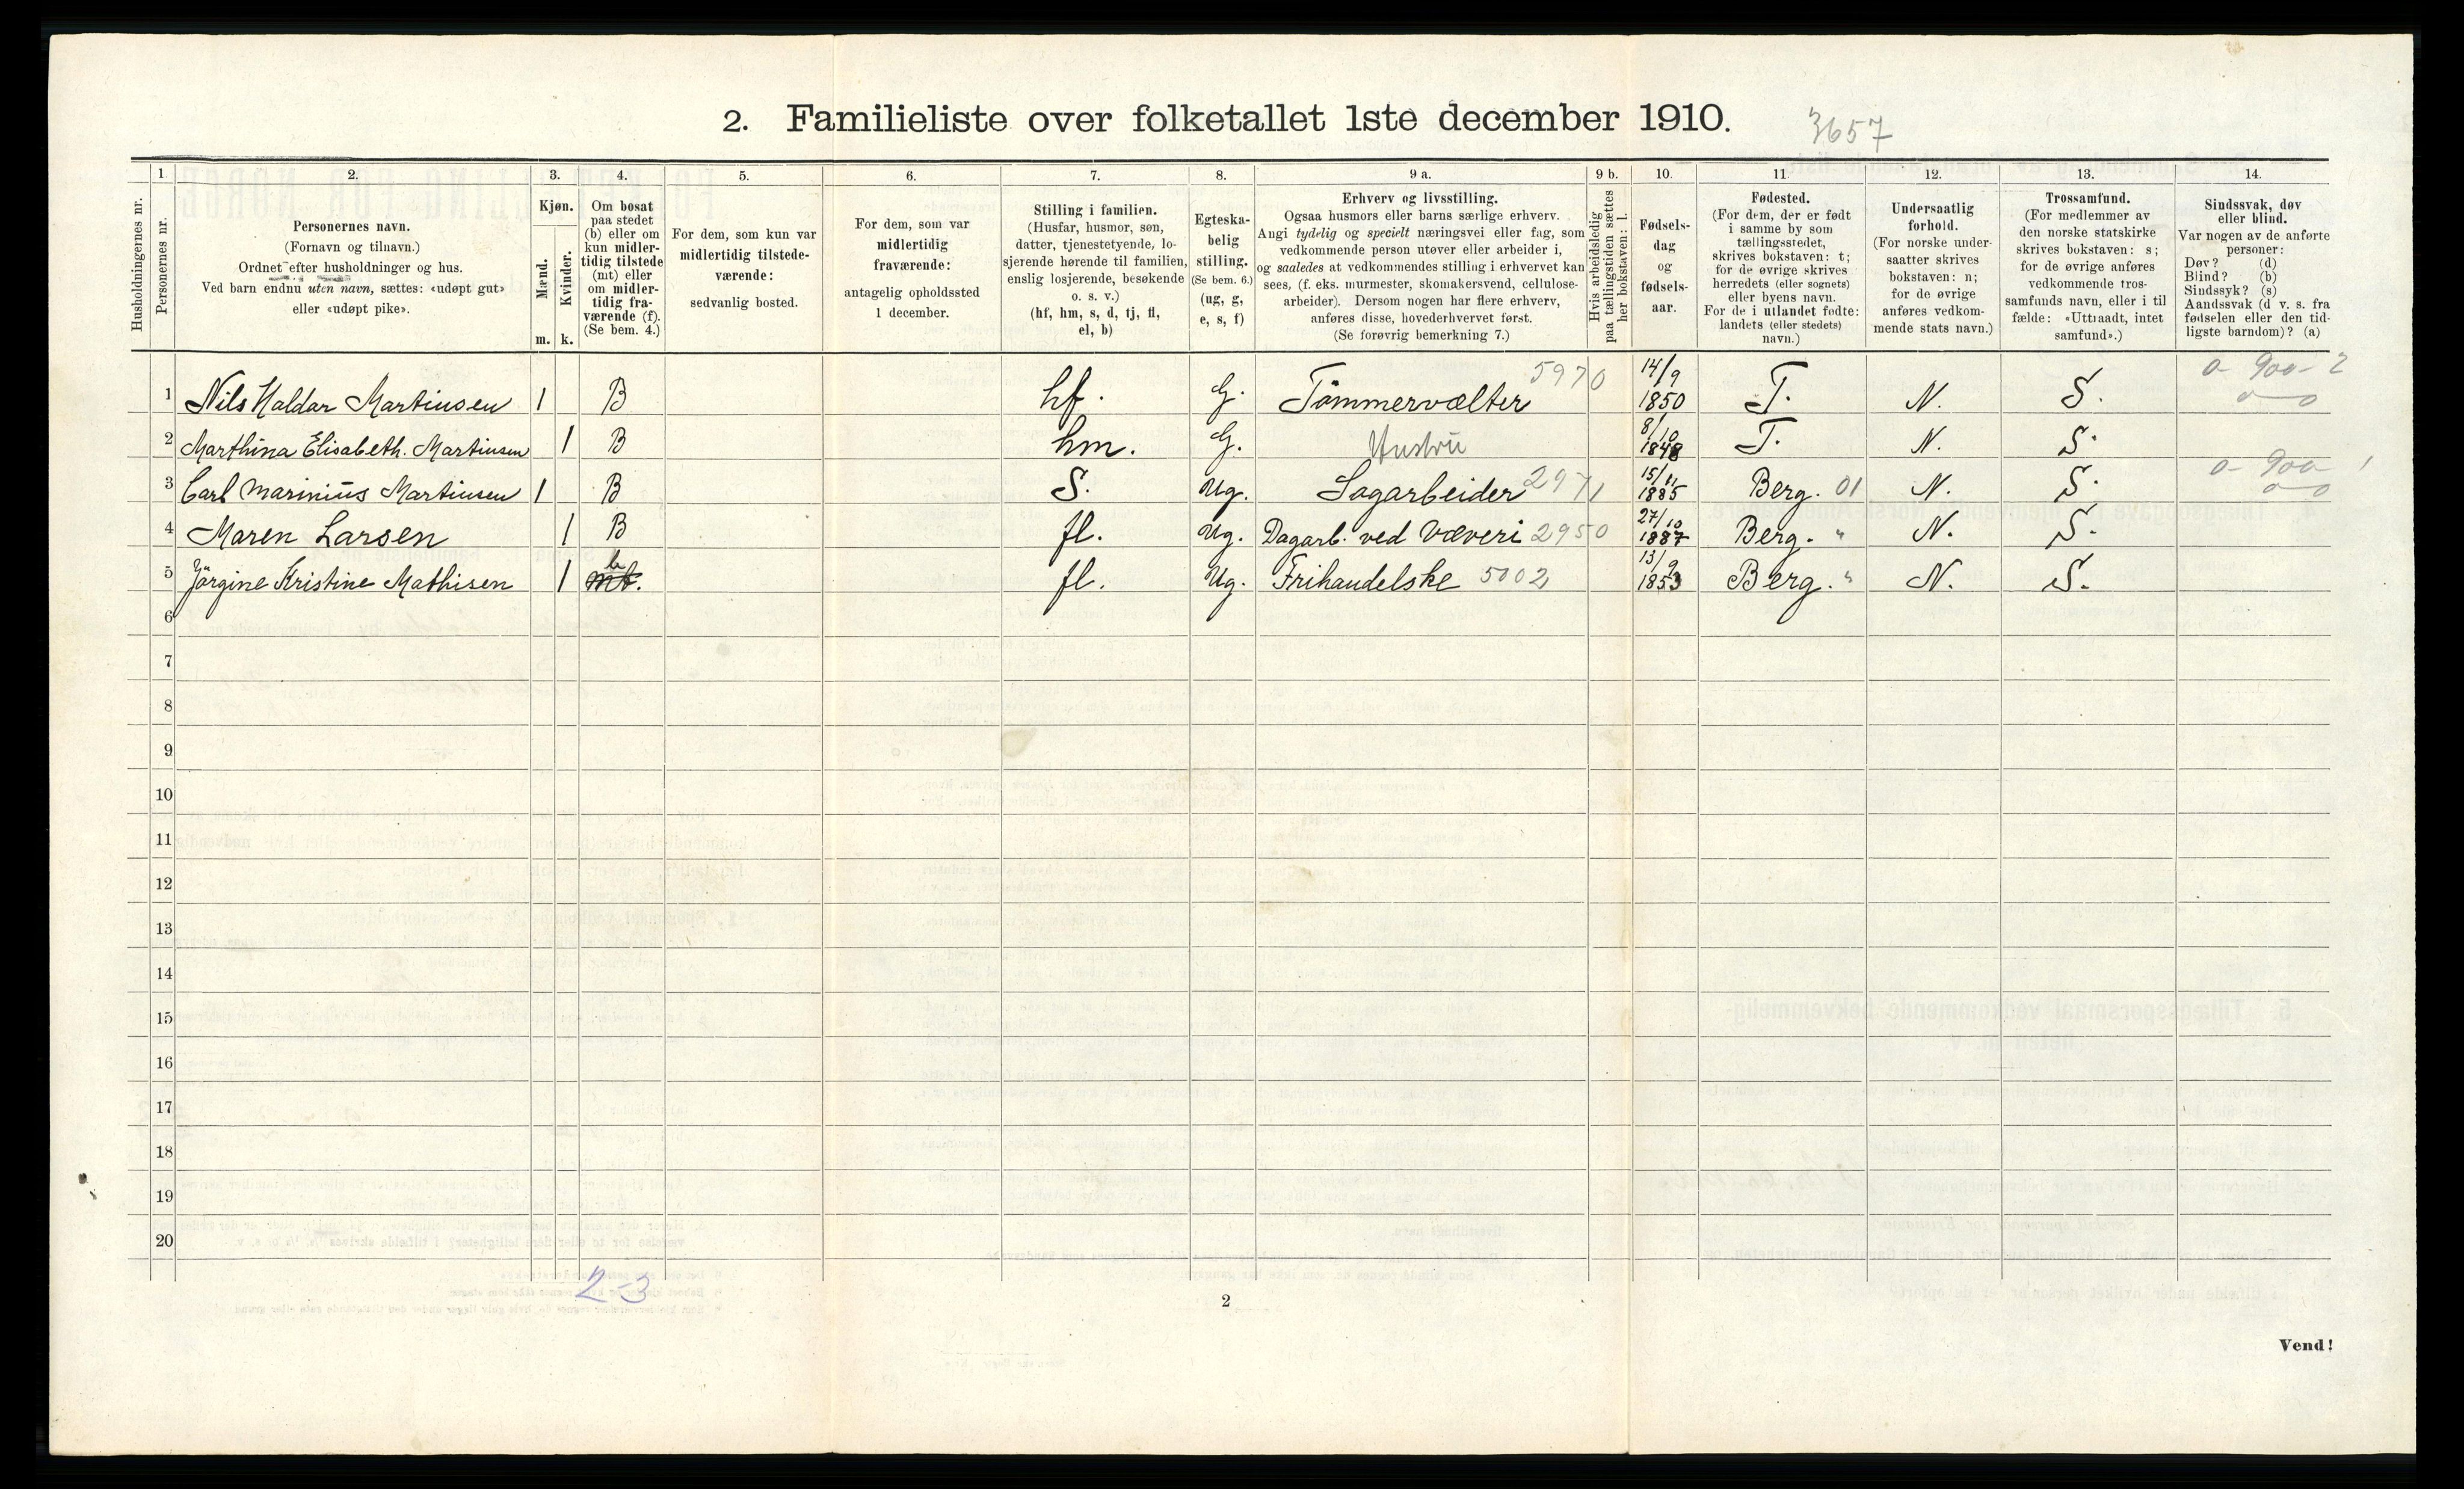 2. Familieliste over folketallet 1ste december 1910.
3657
Husholdningernes nr.
1.
Personernes nr.
2.
Personernes navn.
(Fornavn og tilnavn.)
Ordnet efter husholdninger og hus.
Ved barn endnu uten navn, sættes: «udøpt gut»
eller «udøpt pike».
3.
Kjøn.
Mænd.
Kvinder.
m. k.
4.
Om bosat
paa stedet
(b) eller om
kun midler-
tidig tilstede
(mt) eller
om midler-
tidig fra-
værende (f).
(Se bem. 4.)
5.
For dem, som kun var
midlertidig tilstede-
værende:
sedvanlig bosted.
6.
For dem, som var
midlertidig
fraværende:
antagelig opholdssted
1 december.
7.
Stilling i familien.
(Husfar, husmor, søn,
datter, tjenestetyende, lo-
sjerende hørende til familien,
enslig losjerende, besøkende
o. s. v.)
(hf, hm, s, d, tj, fl,
el, b)
8.
Egteska-
belig
stilling.
(Se bem. 6.)
(ug, g,
e, s, f)
9 a.
Erhverv og livsstilling.
Ogsaa husmors eller barns særlige erhverv.
Angi tydelig og specielt næringsvei eller fag, som
vedkommende person utøver eller arbeider i,
og saaledes at vedkommendes stilling i erhvervet kan
sees, (f. eks. murmester, skomakersvend, cellulose-
arbeider). Dersom nogen har flere erhverv,
anføres disse, hovederhvervet først.
(Se forøvrig bemerkning 7.)
9 b.
Hvis arbeidsledig
paa tællingstiden sættes
her bokstaven: l.
10.
Fødsels-
dag
og
fødsels-
aar.
11.
Fødested.
(For dem, der er født
i samme by som
tællingsstedet,
skrives bokstaven: t;
for de øvrige skrives
herredets (eller sognets)
eller byens navn.
For de i utlandet fødte:
landets (eller stedets)
navn.)
12.
Undersaatlig
forhold.
(For norske under-
saatter skrives
bokstaven: n;
for de øvrige
anføres vedkom-
mende stats navn.)
13.
Trossamfund.
(For medlemmer av
den norske statskirke
skrives bokstaven: s;
for de øvrige anføres
vedkommende tros-
samfunds navn, eller i til
fælde: «Uttraadt, intet
samfund».)
14.
Sindssvak, døv
eller blind.
Var nogen av de anførte
personer:
Døv? (d)
Blind? (b)
Sindssyk? (s)
Aandssvak (d v. s. fra
fødselen eller den tid-
ligste barndom)? (a)
1 Nils Haldar Martinsen 1 B hf. G. Tömmervælter 5970 14/9 1850 T. N. S. 0- 900- 2
2 Marthina Elisabeth. Martinsen 1 B hm. G. Hustrü 8/10 1848 T. N. S.
3 Carl Marinius Martinsen 1 B S. Ug. Sagarbeider 2971 15/11 1885 Berg. 01 N. S. 0- 900- 1
4 Maren Larsen 1 B fl. Ug. Dagarb. ved Væveri 2950 27/10 1887 Berg. " N. S.
5 Jörgine Kristine Mathisen 1 mt. b fl. Ug. Frihandelske 5002 13/9 1853 Berg. " N. S.
6
7
8
9
10
11
12
13
14
15
16
17
18
19
20
2-3
2
Vend!